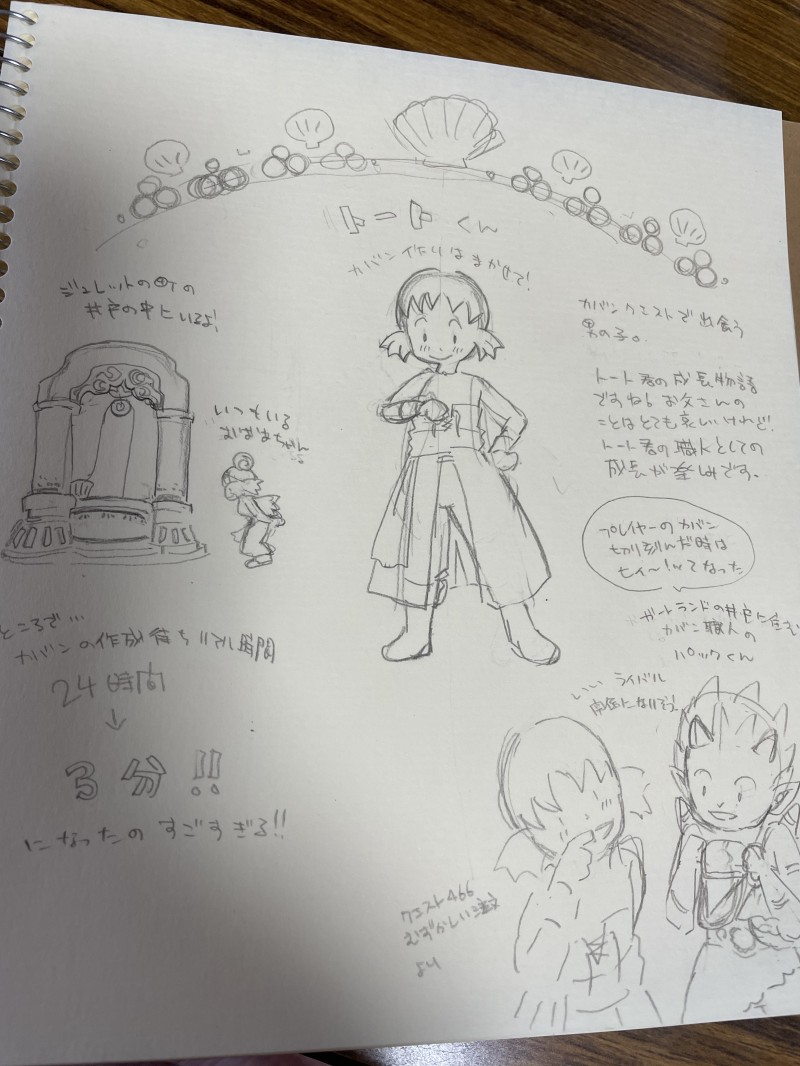 トートくん
カバン作りはまかせて!
ジュレットの町の
井戸の中にいるよ!
いつもいる
おばあちゃん。
カバンクエストで出会う
男の子。
トート君の成長物語
ですね!お父さんの
ことはとても哀しいけれど、
トート君の職人としての
成長が楽しみです。
プレイヤーのカバン
切り刻んだ時は
ヒィ〜!ってなった
ガートランドの井戸に住む
カバン職人の
パックくん
いいライバル
関係になれそう!
ところで…
カバンの作成待ちリアル時間
24時間
↓
3分!!
になったのすごすぎる!!
クエスト466
むずかしい注文
より